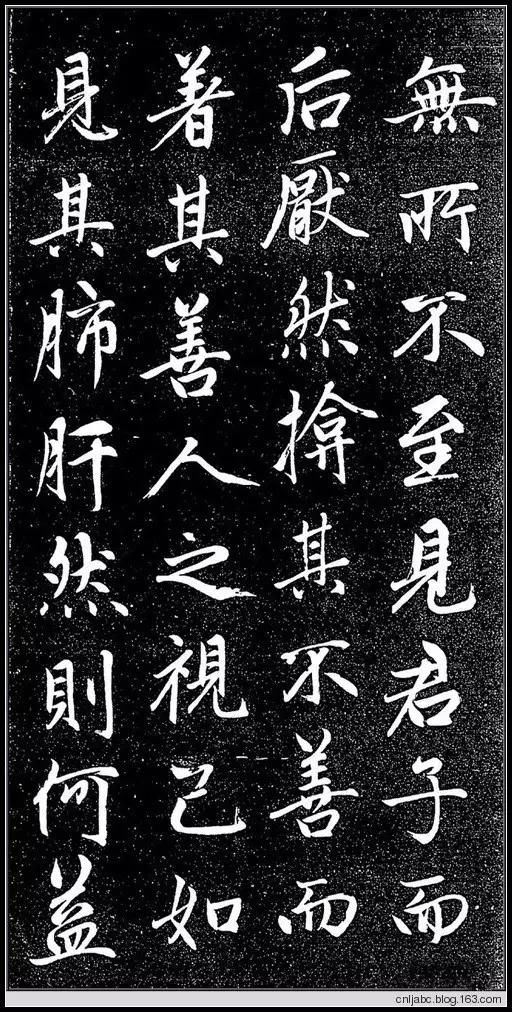 無所不至見君子而
后厭然揜其不善而
著其善人之視己如
見其肺肝然則何益
cnljabc.blog.163.com